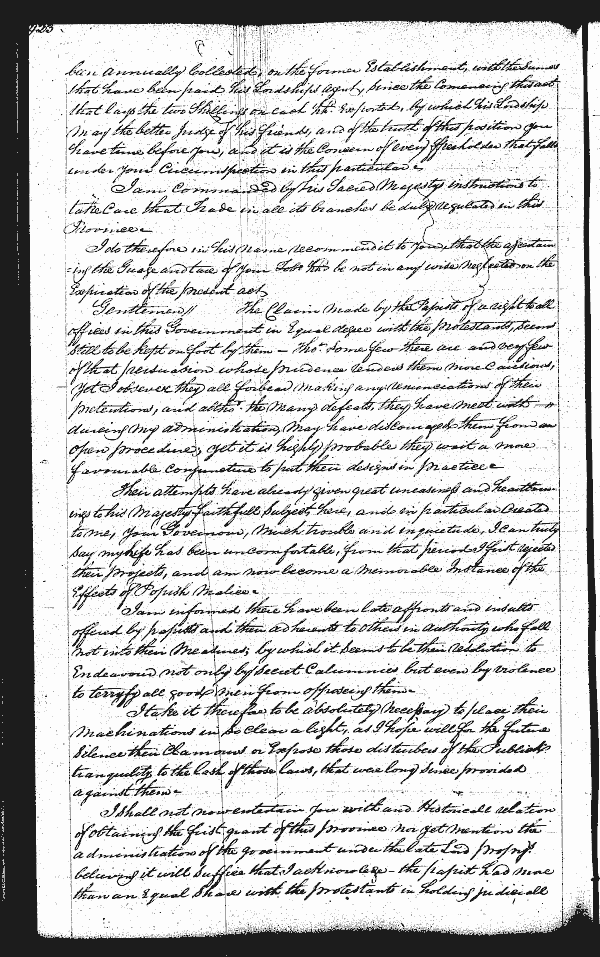 423
been annually Collected, on the former Establishment, with the Summs
that have been paid his Lordships agent, Since the Comencing this act
that lays the two Shillings on each hhd. Exported, by which his Lordship
may the better Judge of his friends, and of the truth of this position you
have time before you, and it is the Concern of every freeholder that falls
under your Circumspection in this particular
I am Commanded by his Sacred Majestys instructions to
take Care that Trade in all its branches be duly regulated in this
Province
I do therefore in his name recommend it to you, that the ascertain
=ing the Guage and tare of your Tobo hhds be not in any wise neglected on the
Expiration of the present act
Gentlemen// The Claim made by the Papists of a right to all
offices in this Government in Equal degree with the protestants, seems
still to be kept on foot by them – Tho' some few there are and very few
of that perswasion whose prudence renders them more Cautious,
yet I observe they all forbear making any renunciations of their
pretentions, and altho' the many defeats, they have meet with
dureing my administration, may have discouraged them from an
open procedure, yet it is highly probable they wait a more
favourable Conjuncture to put their designs in practice
Their attempts have already given great uneasiness and heartburn
ings to his Majestys faithfull Subjects here, and in particular Created
to me, your Governour, much trouble and inquietude, I can truly
say my life has been uncomfortable, from that period I first rejected
their projects, and am now become a memorable Instance of the
Effects of Popish Malice
I am informed there have been late affronts and insults
offered by papists and their adherents to others in authority who fall
not into their Measures; by which it Seems to be their resolution to
Endeavour not only by Secret Calumnies but even by violence
to terryfy all good men from opposeing them
I take it therefore to be absolutely necessary to place their
Machinations in so clear a light, as I hope will for the future
Silence their Clamours or Expose those disturbers of the Publick
tranquility to the lash of those laws, that were long Since provided
against them
I shall not now entertain you with and Historicall relation
of obtaining the first grant of this province nor yet mention the
administration of the government under the late Lord propry.
believing it will Suffice that I acknowlege – the papist had more
than an Equal Share with the protestants in holding judiciall